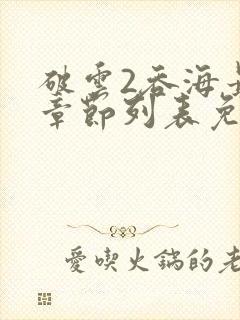 破雲2吞海
章節列表免
愛喫火鍋的老